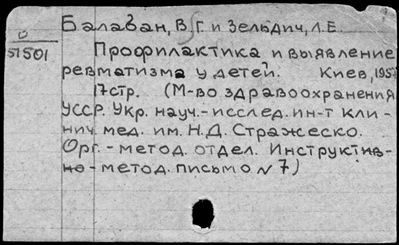 Балабан, В.Г. и Зельдич, Л.Е.
51501
Профилактика и выявление
ревматизма у детей. Киев, 1957
17стр. (М-во здравоохранения
УССР. Укр. науч.-исслед. ин-т кли-
нич. мед. им. Н.Д. Стражеско.
Орг.-метод. отдел. Инструктив-
но-метод. письмо N 7)